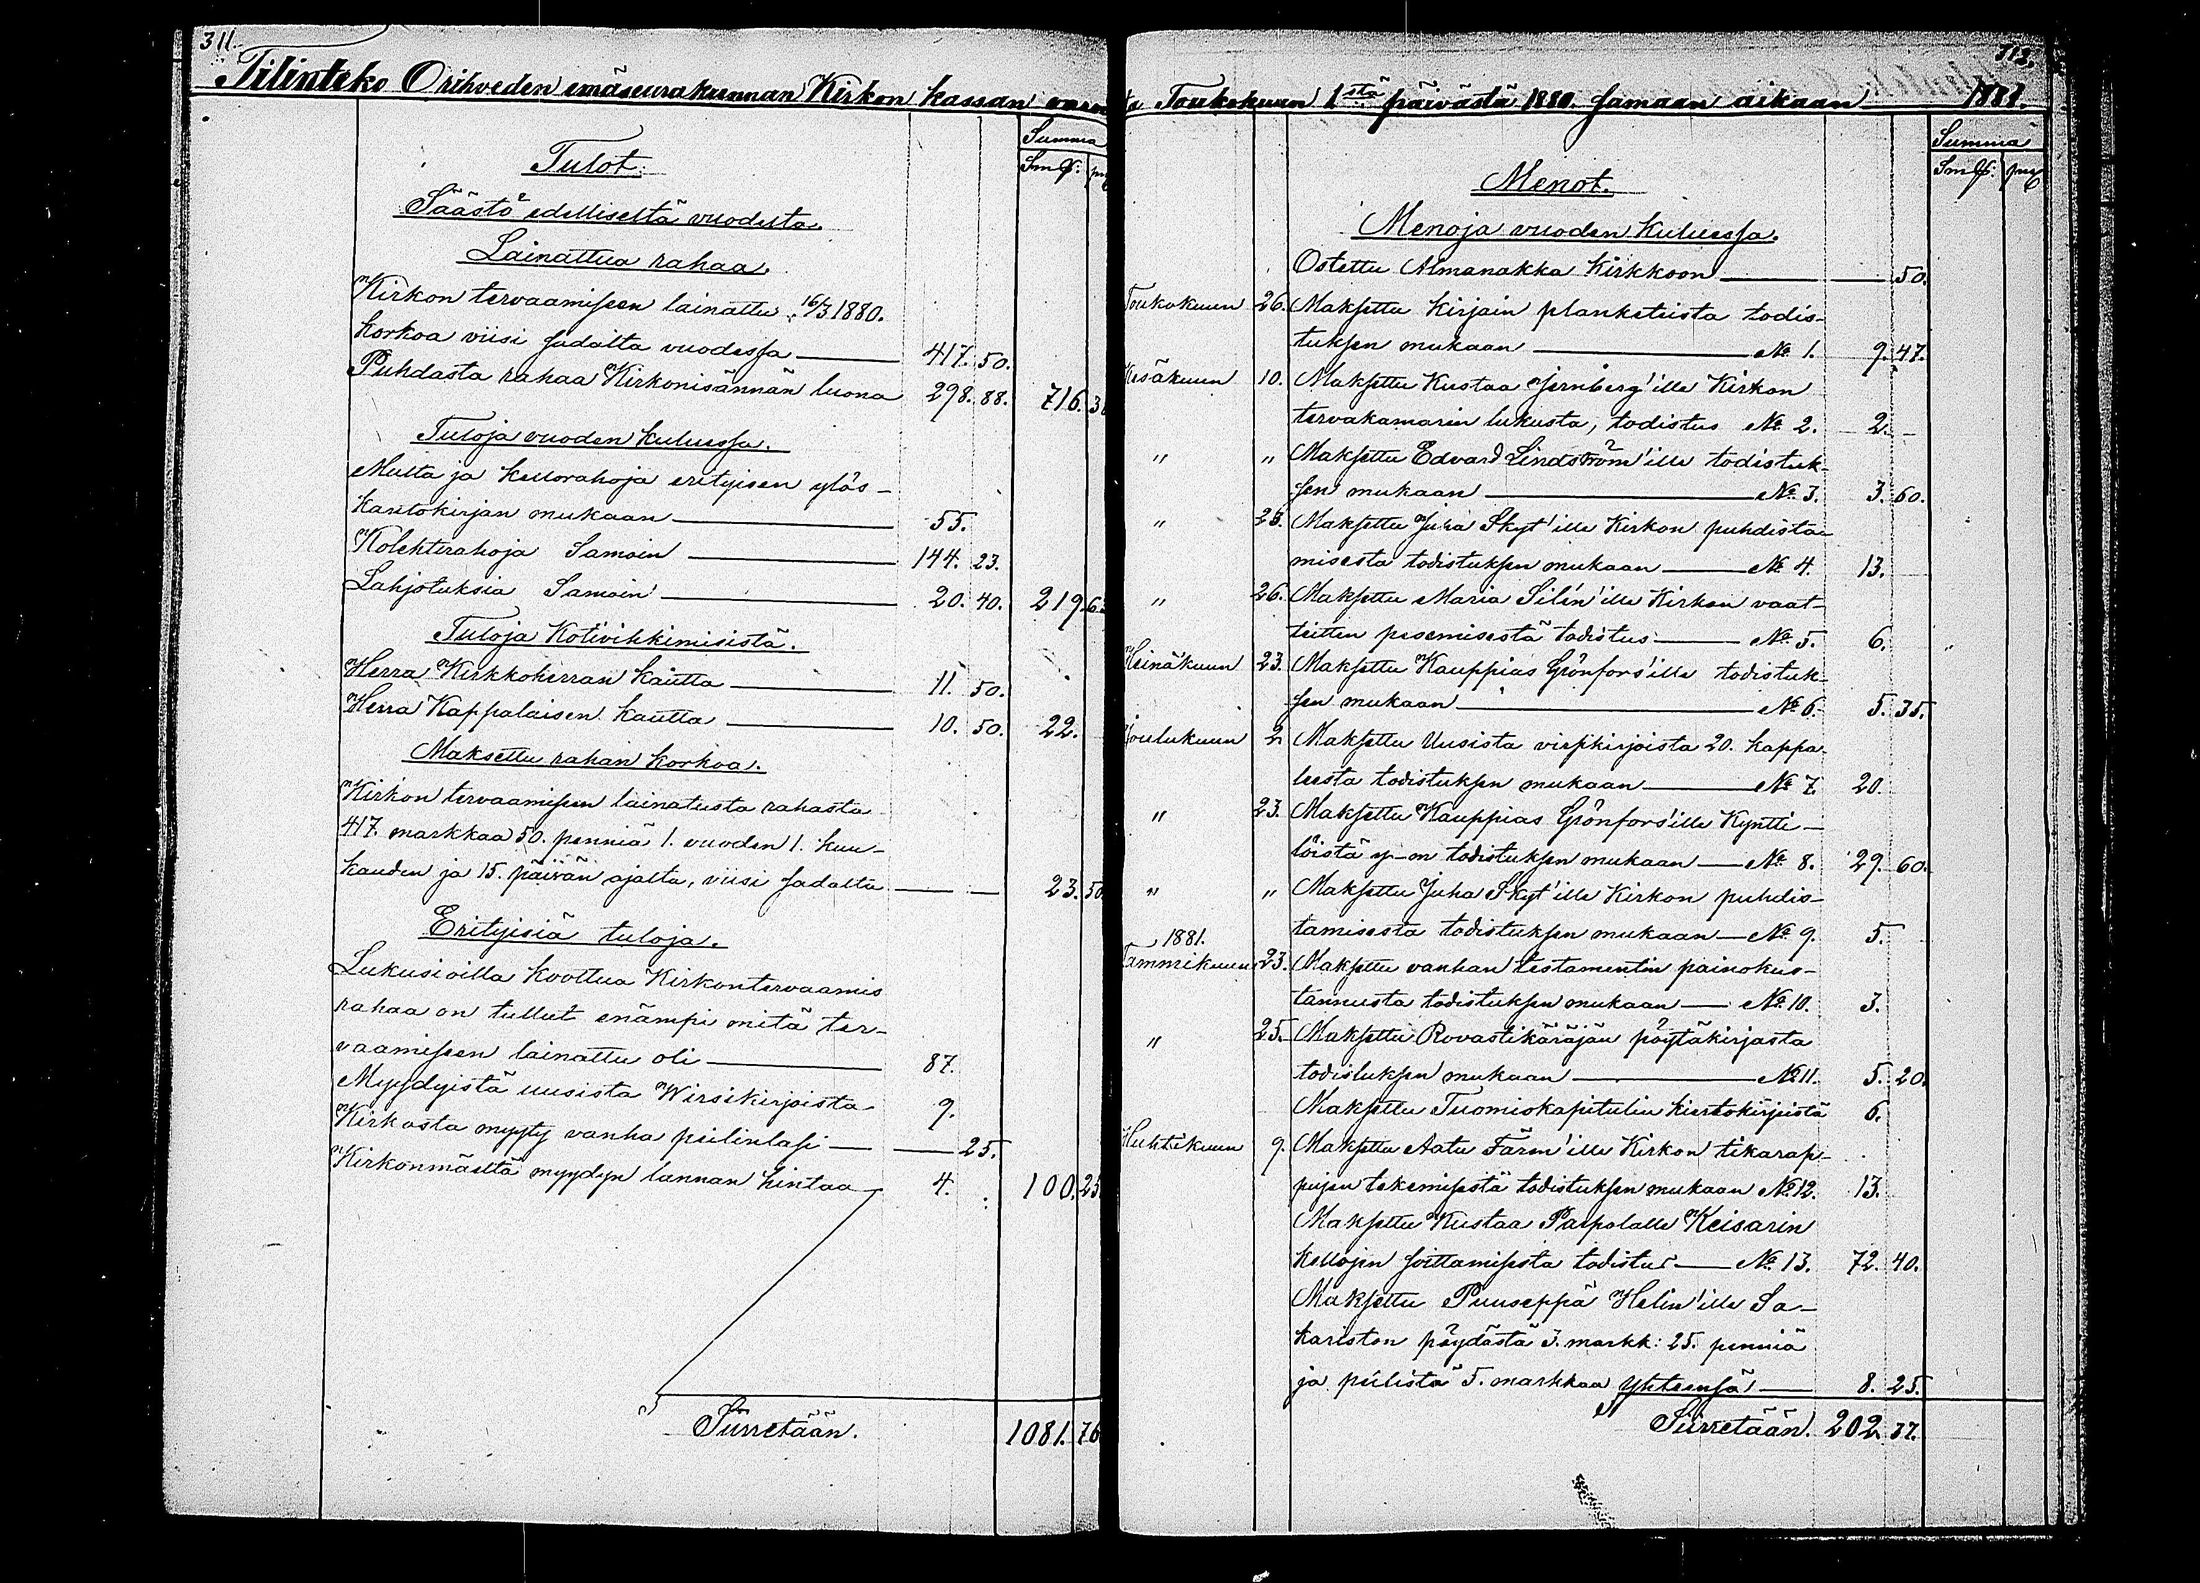 311.
Tilinteko Orihveden emäseurakunnan Kirkon kassan
Summa
Smf: p
Tulot.
Säästö edelliseltä vuodelta.
Lainattua rahaa.
Kirkon tervaamiseen lainattu 16/3 1880.
korkoa viisi sadalta vuodessa 417. 50.
Puhdasta rahaa Kirkonisännän luona 298. 88. 716. 3
Tuloja vuoden kuluessa.
Multa ja kellorahoja erityisen ylös-
kantokirjan mukaan 55.
Kolehtirahoja Samoin 144. 23.
Lahjotuksia Samoin 20. 40. 219. 6
Tuloja Kotivihkimisistä.
Herra Kirkkoherran kautta 11. 50.
Herra Kappalaisen kautta 10. 50. 22.
Maksettu rahan korkoa.
Kirkon tervaamiseen lainatusta rahasta
417. markkaa 50. penniä 1. vuoden 1. kuu-
kauden ja 15. päivän ajalta, viisi sadalta 23. 50
Erityisiä tuloja.
Lukusioilla koottua Kirkontervaamis
rahaa on tullut enämpi mitä ter-
vaamiseen lainattu oli 87.
Myydyistä uusista Wirsikirjoista 9.
Kirkosta myyty vanha peilinlasi 25.
Kirkonmäeltä myydyn lannan hintaa 4. 100. 25
Siirretään. 1081. 76
313.
Toukokuun 1stä päivästä 1880. samaan aikaan 1881.
Summa
Smf: png
Menot.
Menoja vuoden kuluessa.
Ostettu Almanakka Kirkkoon 50.
Toukokuun 26. Maksettu kirjain planketeista todis-
tuksen mukaan No 1. 9. 47.
Kesäkuun 10. Maksettu Kustaa Jernberg'ille Kirkon
tervakamarin lukusta, todistus No 2. 2. -
" " Maksettu Edvard Lindström'ille todistuk-
sen mukaan No 3. 3. 60.
" 25. Maksettu Juha Skyt'ille Kirkon puhdista-
misesta todistuksen mukaan No 4. 13.
" 26. Maksettu Maria Silén'ille Kirkon vaat-
teitten pesemisestä todistus No 5. 6.
Heinäkuun 23. Maksettu Kauppias Grönfors'ille todistuk-
sen mukaan No 6. 5. 35.
Joulukuun 2. Maksettu Uusista virsikirjoista 20. kappa-
leesta todistuksen mukaan No 7. 20.
" 23. Maksettu Kauppias Grönfors'ille Kyntti-
löistä y-m todistuksen mukaan No 8. 29. 60.
" " Maksettu Juha Skyt'ille Kirkon puhdis-
tamisesta todistuksen mukaan No 9. 5.
1881.
Tammikuun 23. Maksettu vanhan testamentin painokus-
tannusta todistuksen mukaan No 10. 3.
" 25. Maksettu Rovastikäräjän pöytäkirjasta
todistuksen mukaan No 11. 5. 20.
Maksettu Tuomiokapitulin kiertokirjeistä 6.
Huhtikuun 9. Maksettu Aatu Färm'ille Kirkon tikarap-
pujen tekemisestä todistuksen mukaan No 12. 13.
Maksettu Kustaa Parpolalle Keisarin
kellojen soittamisesta todistus No 13. 72. 40.
Maksettu Puuseppä Helin'ille Sa-
kariston pöydästä 3. markk: 25. penniä
ja peilistä 5. markkaa yhteensä 8. 25.
Siirretään. 202. 37.